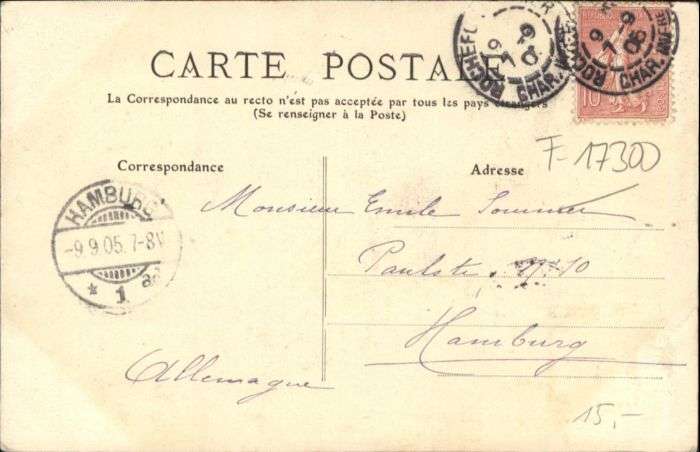 CARTE POSTALE
La Correspondance au recto n'est pas acceptée par tous les pays étrangers
(Se renseigner à la Poste)
F-17300
Correspondance
Adresse
HAMBURG
-9.9.05.7-8V
* 1
Monsieur Emile Sommer
Paulstr. 10
Hamburg
Allemagne
15,-
ROCHEF
CHAR.
10